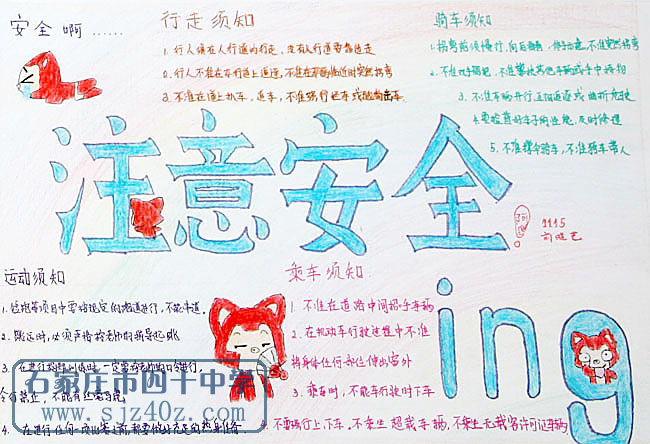 安全啊……
行走须知
1. 行人须在人行道内行走，没有人行道要靠边走
2. 行人不准在车行道上追逐，不准在车辆临近时突然拐弯
3. 不准在道上扒车，追车，不准强行拦车或抛物击车
骑车须知
1. 拐弯前须慢行，向后
不准突然拐弯
2. 不准双手离把，不准攀扶其他车辆或手中持物
3. 不准车辆并行，互相追逐或曲折竞驶
4. 要检查好车子的性能，及时修理
5. 不准撑伞骑车，不准骑车带人
注意安全
ing
1115
运动须知
不能串道。
2. 跳远时，必须严格按老师的指导起跳
3. 在进行投掷训练时，一定要按老师的口令进行，
令行禁止，不能有
4. 在进行任何
前，都要做好充足的热身准备.
乘车须知
1. 不准在道路中间招手车辆
2. 在机动车行驶过程中不准
将身体任何部位伸出窗外
3. 乘车时，不能车行驶时下车
4. 不要强行上、下车，不乘坐超载车辆，不乘坐无载客许可证车辆
石家庄市四十中学
www.sjz40z.com